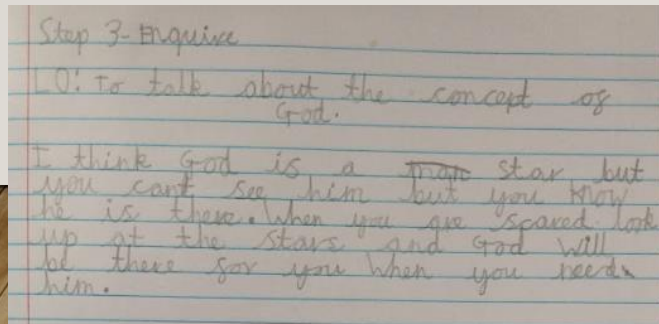 Step 3- Enquire
LO: To talk about the concept of
God.
I think God is a man star but
you cant see him but you know
he is there. When you are scared look
up at the stars and God will
be there for you when you need
him.